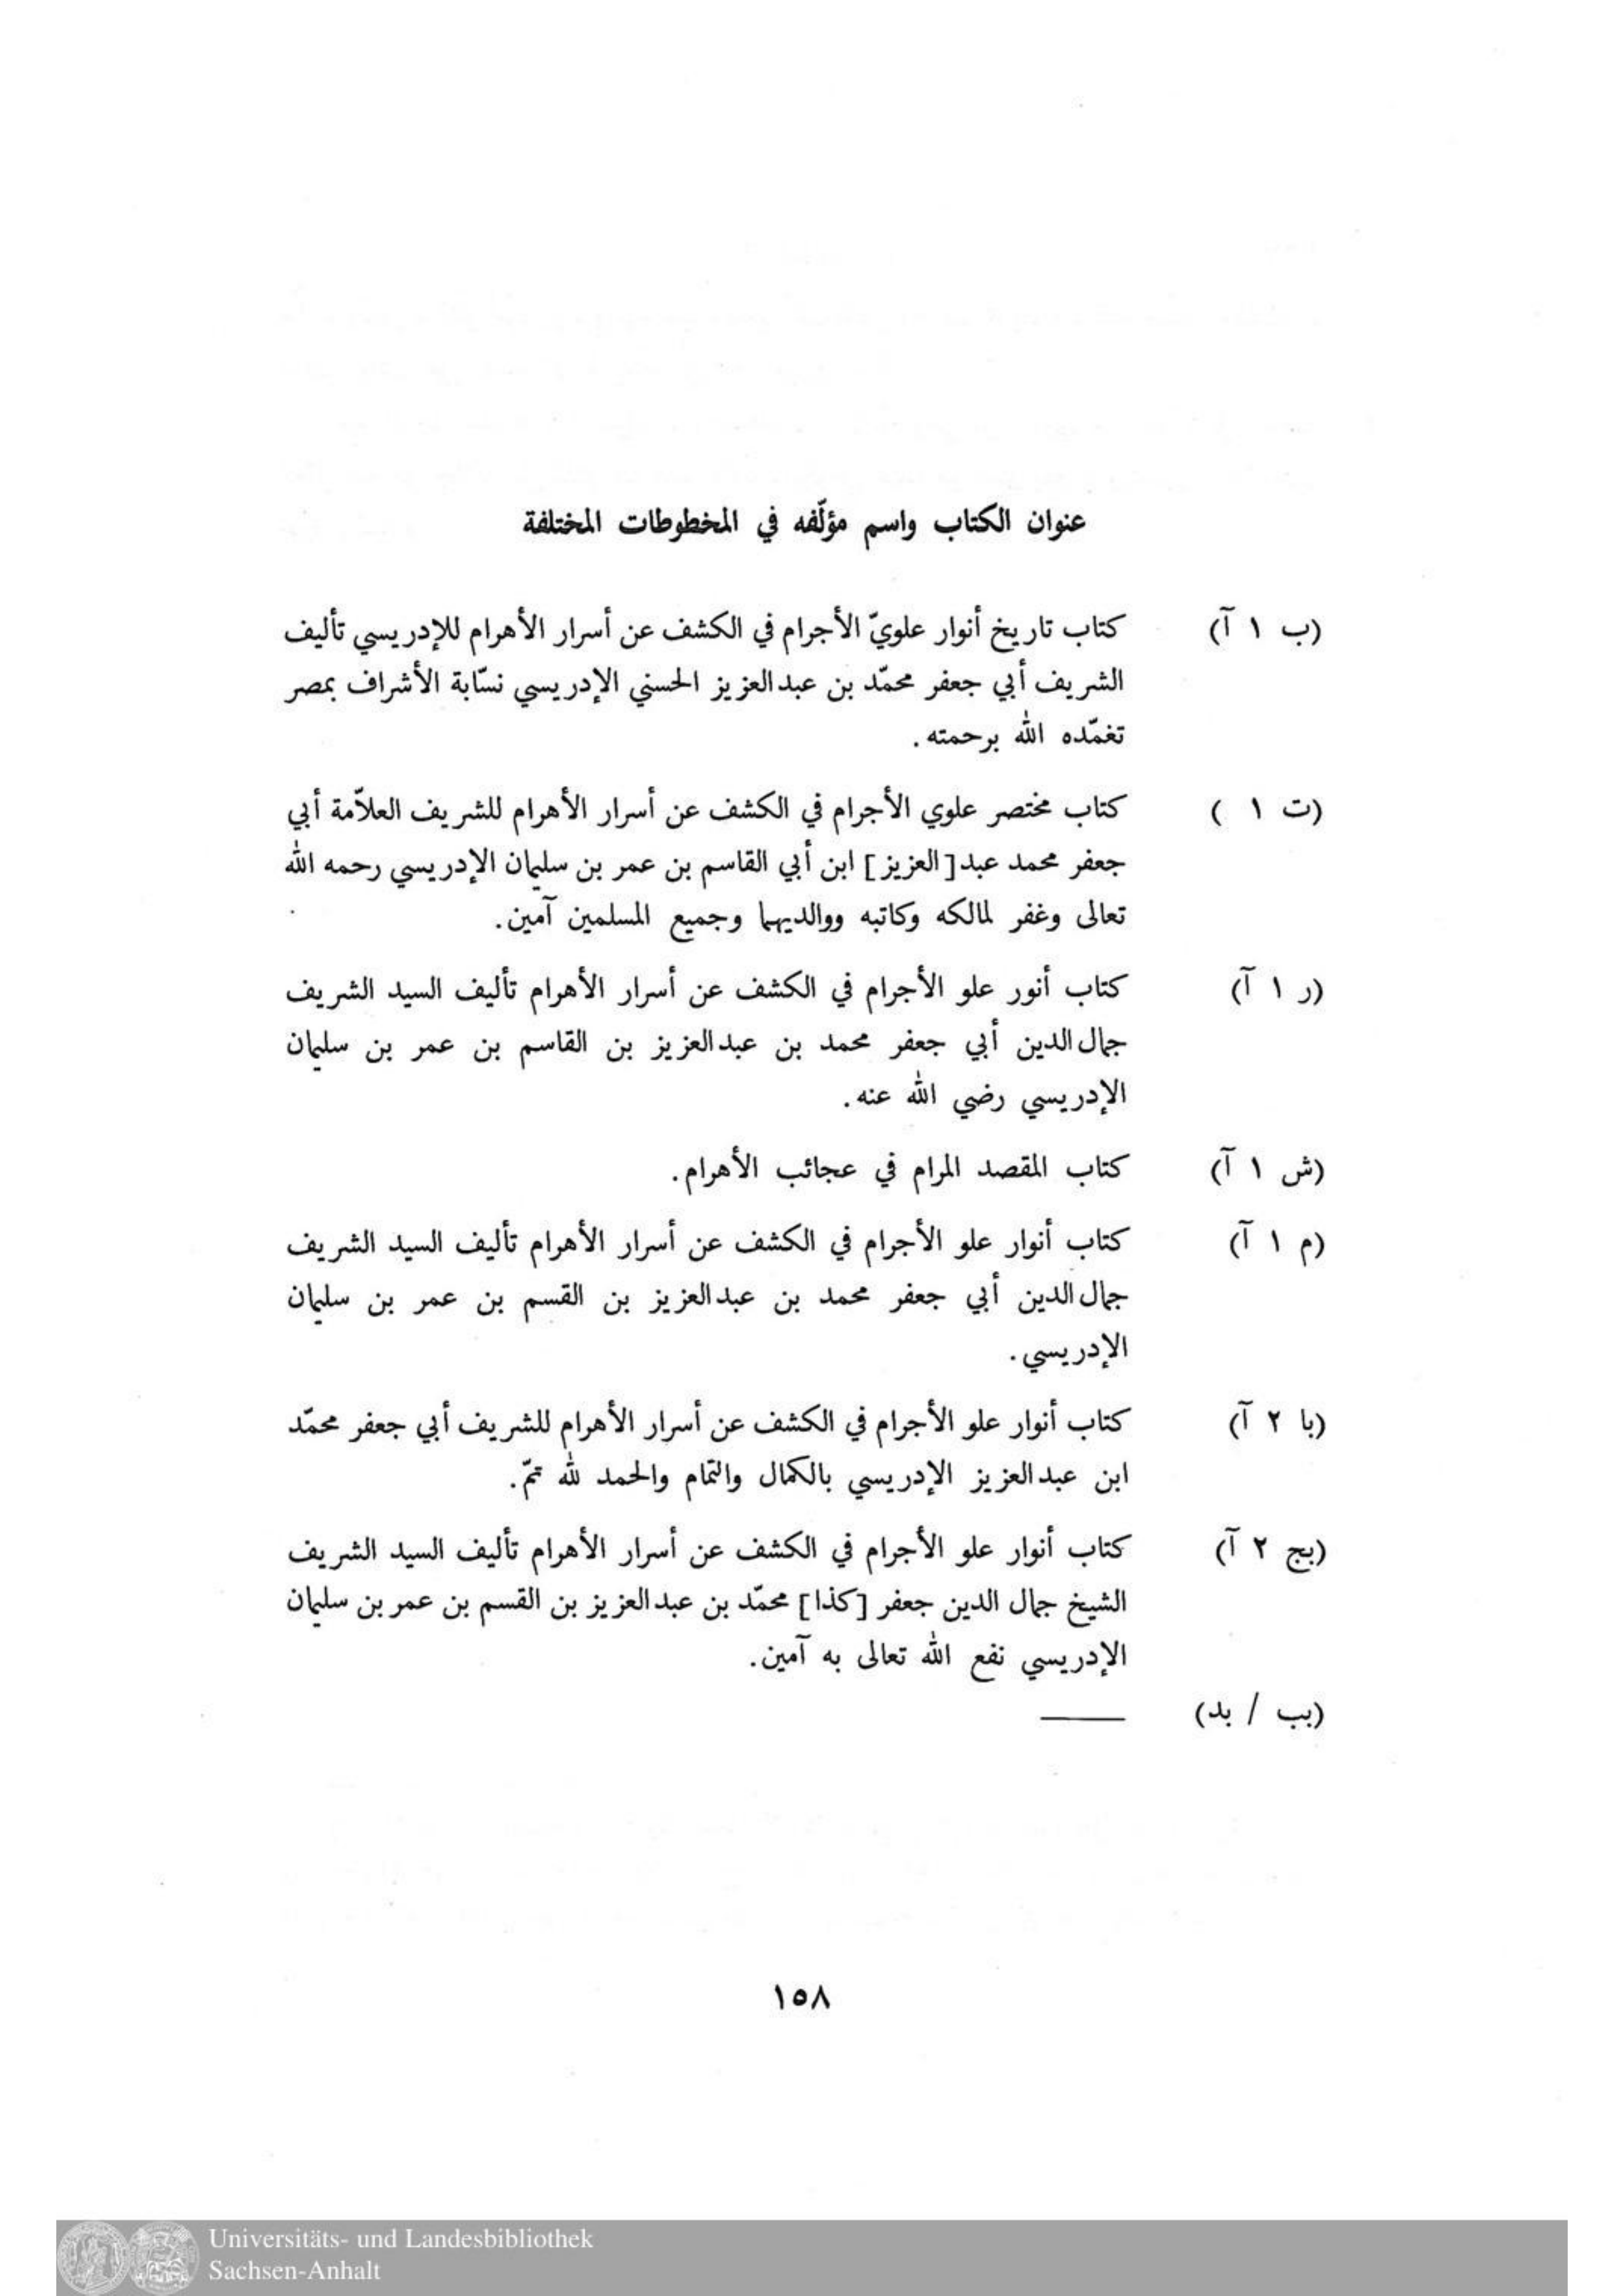 عنوان الكتاب واسم مؤلّفه في المخطوطات المختلفة
(ب ١ آ) كتاب تاريخ أنوار علويّ الأجرام في الكشف عن أسرار الأهرام للإدريسي تأليف
الشريف أبي جعفر محمّد بن عبدالعزيز الحسني الإدريسي نسّابة الأشراف بمصر
تغمّده الله برحمته.
(ت ١ ) كتاب مختصر علوي الأجرام في الكشف عن أسرار الأهرام للشريف العلاّمة أبي
جعفر محمد عبد[العزيز] ابن أبي القاسم بن عمر بن سليمان الإدريسي رحمه الله
تعالى وغفر لمالكه وكاتبه ووالديهما وجميع المسلمين آمين.
(ر ١ آ) كتاب أنور علو الأجرام في الكشف عن أسرار الأهرام تأليف السيد الشريف
جمال الدين أبي جعفر محمد بن عبدالعزيز بن القاسم بن عمر بن سليمان
الإدريسي رضي الله عنه.
(ش ١ آ) كتاب المقصد المرام في عجائب الأهرام.
(م ١ آ) كتاب أنوار علو الأجرام في الكشف عن أسرار الأهرام تأليف السيد الشريف
جمال الدين أبي جعفر محمد بن عبدالعزيز بن القسم بن عمر بن سليمان
الإدريسي.
(با ٢ آ) كتاب أنوار علو الأجرام في الكشف عن أسرار الأهرام للشريف أبي جعفر محمّد
ابن عبدالعزيز الإدريسي بالكمال والتمام والحمد لله تمّ.
(بج ٢ آ) كتاب أنوار علو الأجرام في الكشف عن أسرار الأهرام تأليف السيد الشريف
الشيخ جمال الدين جعفر [كذا] محمّد بن عبدالعزيز بن القسم بن عمر بن سليمان
الإدريسي نفع الله تعالى به آمين.
(بب / بد) ——
١٥٨
Universitäts- und Landesbibliothek
Sachsen-Anhalt